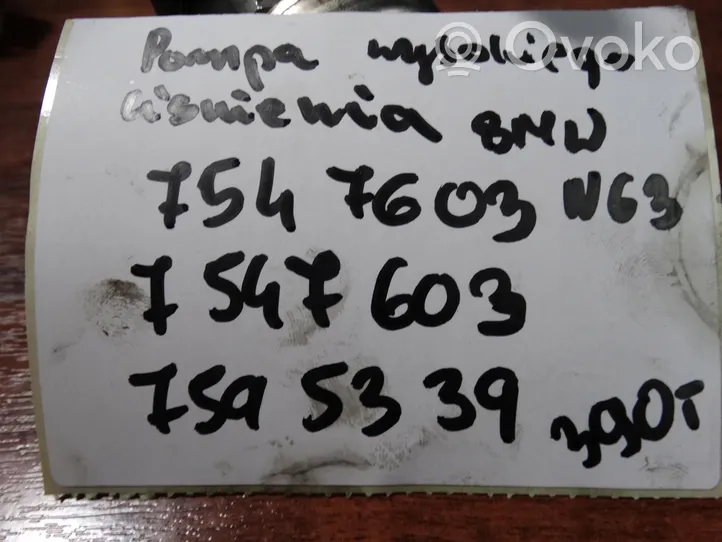 Ovoko
Pompa wysokiego
ciśnienia BMW
754 7603 N63
7 547 603
759 53 39
390T